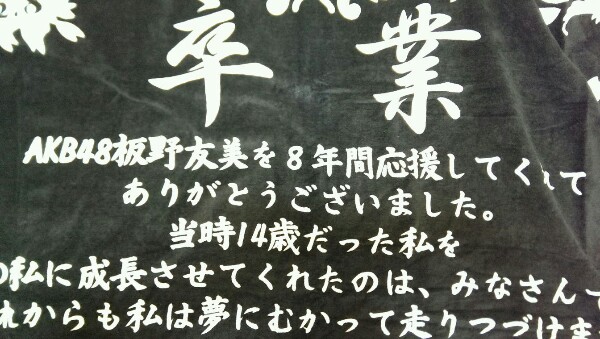 卒業
AKB48板野友美を8年間応援してくれて
ありがとうございました。
当時14歳だった私を
の私に成長させてくれたのは、みなさんで
れからも私は夢にむかって走りつづけま